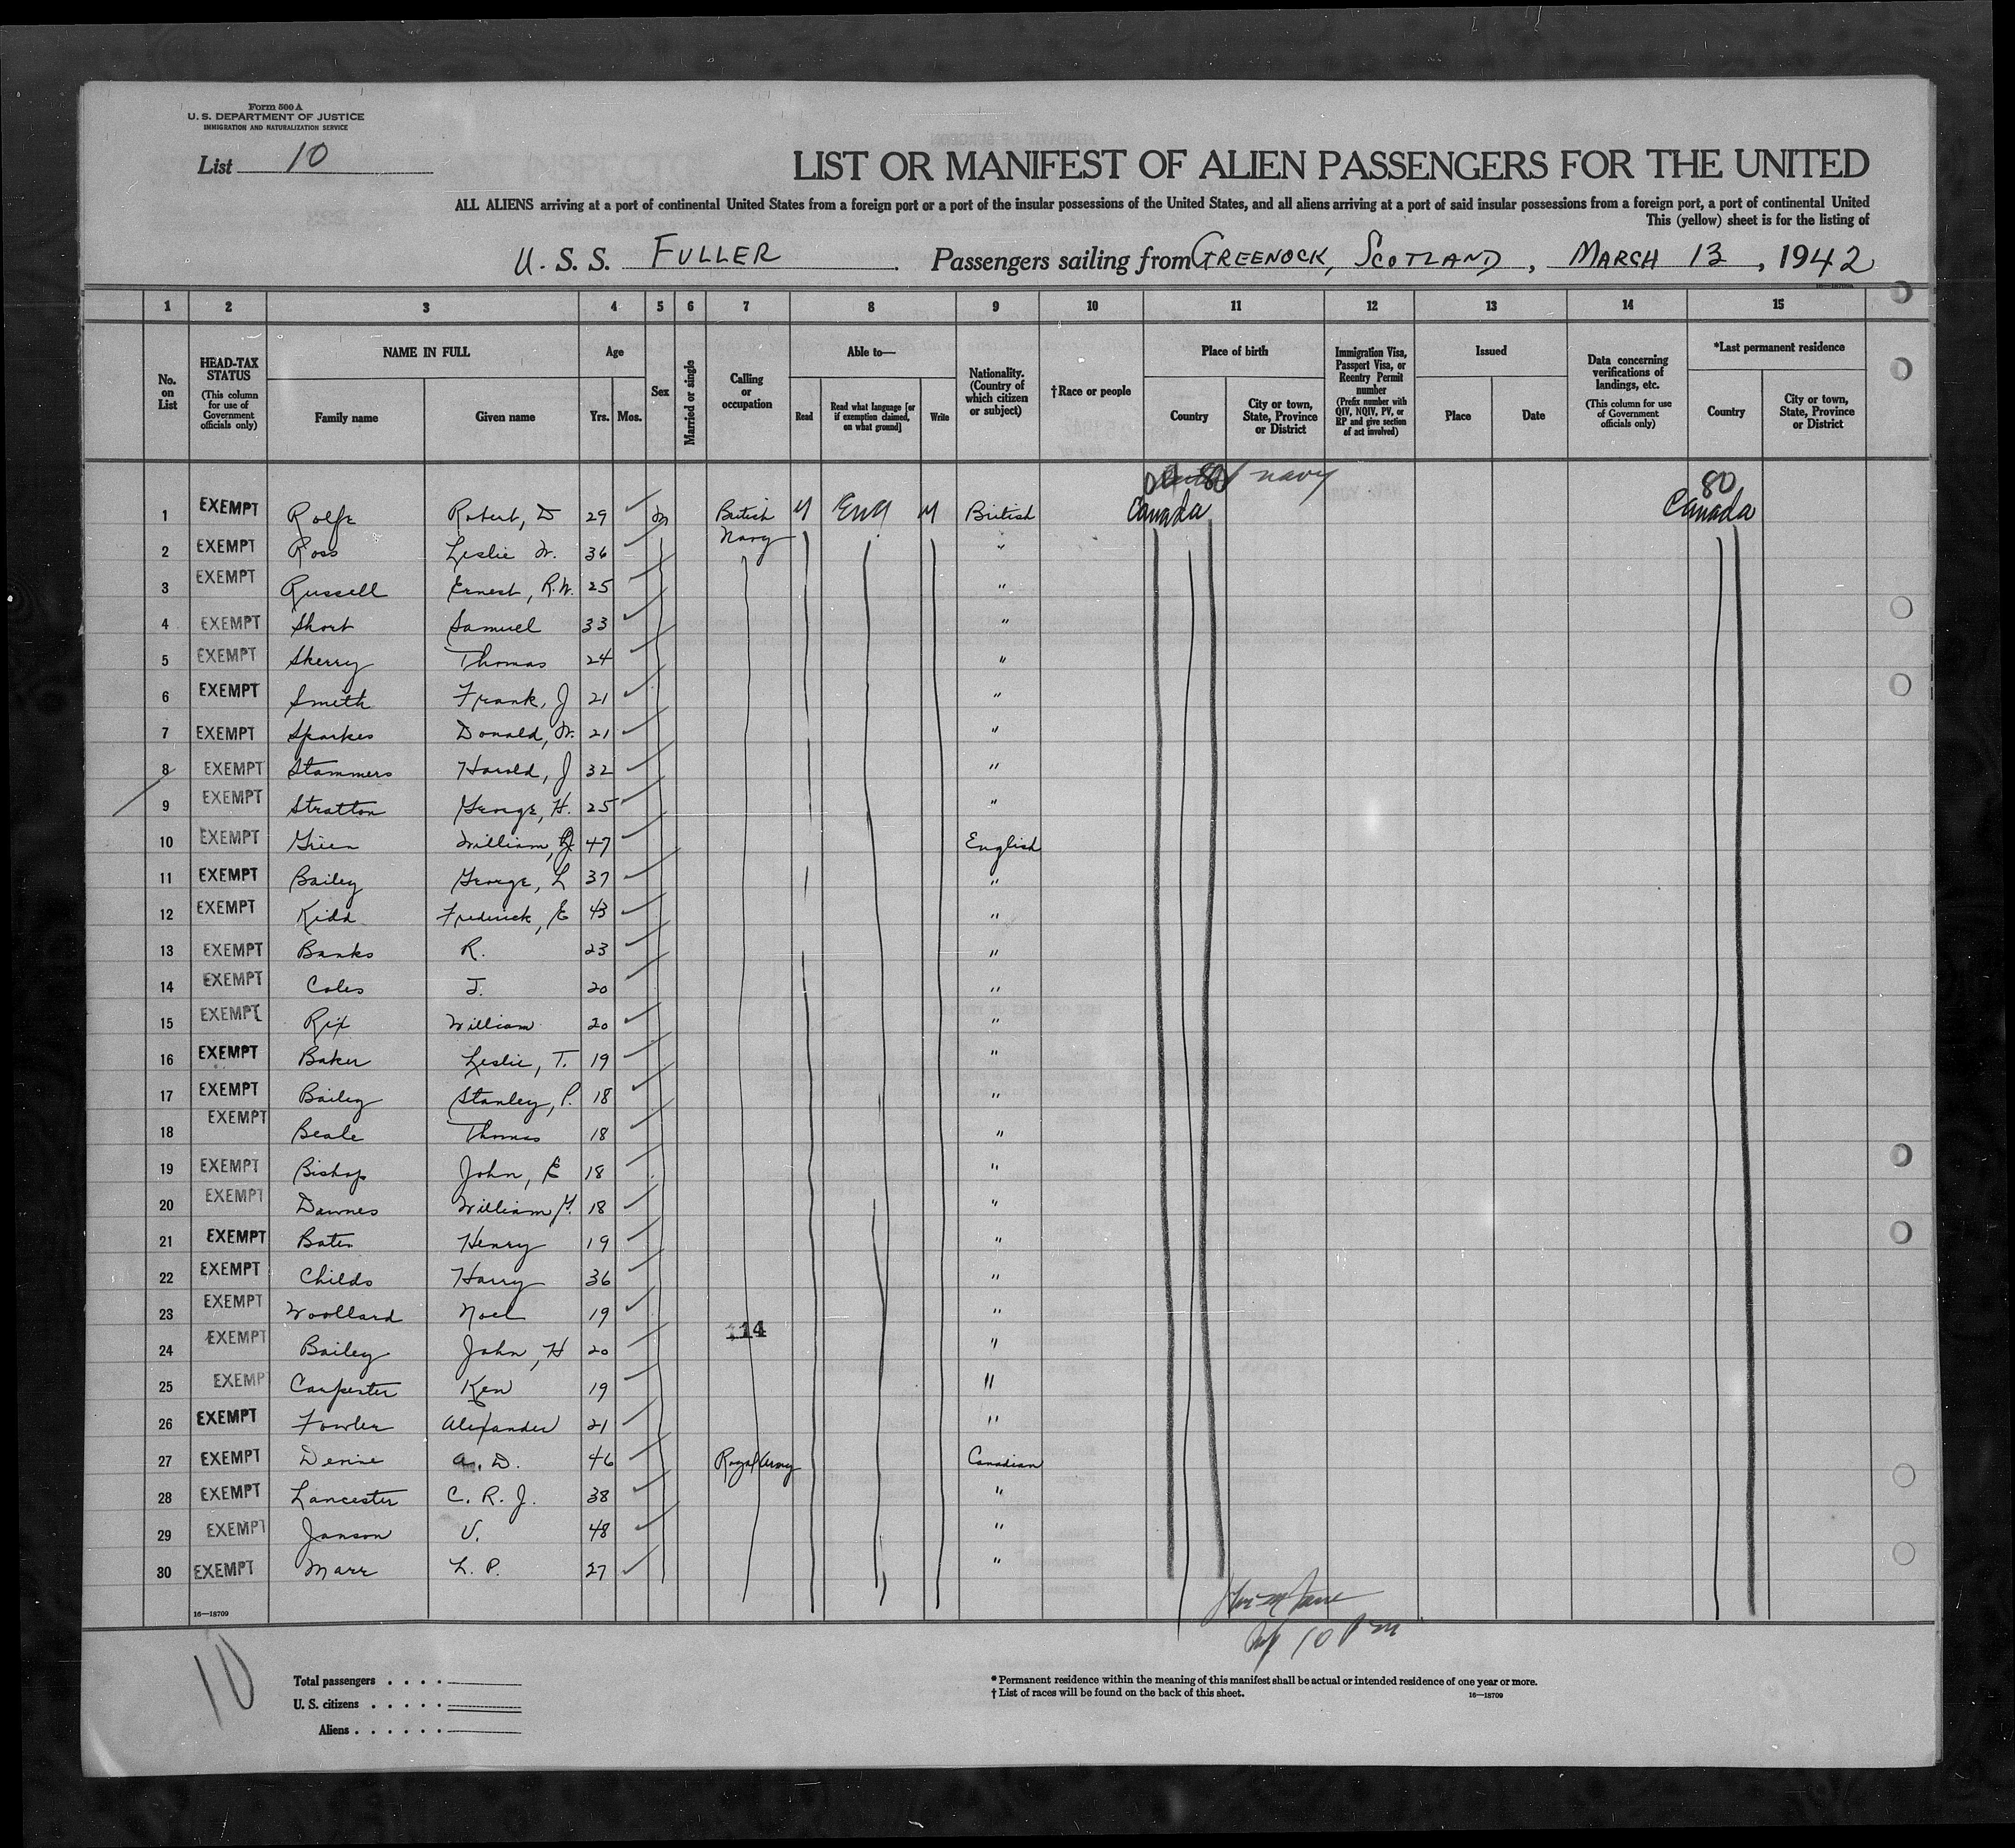 Form 500 A
U. S. DEPARTMENT OF JUSTICE
IMMIGRATION AND NATURALIZATION SERVICE
List 10
LIST OR MANIFEST OF ALIEN PASSENGERS FOR THE UNITED
ALL ALIENS arriving at a port of continental United States from a foreign port or a port of the insular possessions of the United States, and all aliens arriving at a port of said insular possessions from a foreign port, a port of continental United
This (yellow) sheet is for the listing of
U. S. S. FULLER . Passengers sailing from GREENOCK, SCOTLAND, MARCH 13, 1942
1 2 3 4 5 6 7 8 9 10 11 12 13 14 15
No. on List
HEAD-TAX STATUS (This column for use of Government officials only)
NAME IN FULL
Family name Given name
Age
Yrs. Mos.
Sex
Married or single
Calling or occupation
Able to—
Read
Read what language [or if exemption claimed, on what ground]
Write
Nationality. (Country of which citizen or subject)
†Race or people
Place of birth
Country
City or town, State, Province or District
Immigration Visa, Passport Visa, or Reentry Permit number (Prefix number with QIV, NQIV, PV, or RP and give section of act involved)
Issued
Place Date
Data concerning verifications of landings, etc. (This column for use of Government officials only)
*Last permanent residence
Country
City or town, State, Province or District
navy 80
1 EXEMPT Rolfe Robert, D 29 m British Navy Y Eng Y British Canada Canada
2 EXEMPT Ross Leslie W. 36 "
3 EXEMPT Russell Ernest, R.W. 25 "
4 EXEMPT Short Samuel 33 "
5 EXEMPT Skerry Thomas 24 "
6 EXEMPT Smith Frank, J 21 "
7 EXEMPT Sparkes Donald, W. 21 "
8 EXEMPT Stammers Harold, J 32 "
9 EXEMPT Stratton George, H. 25 "
10 EXEMPT Green William, 47 English
11 EXEMPT Bailey George, L 37 "
12 EXEMPT Kidd Frederick, E 43 "
13 EXEMPT Banks R. 23 "
14 EXEMPT Coles J. 20 "
15 EXEMPT Rix William 20 "
16 EXEMPT Baker Leslie, T. 19 "
17 EXEMPT Bailey Stanley, P. 18 "
18 EXEMPT Beale Thomas 18 "
19 EXEMPT Bishop John, E 18 "
20 EXEMPT Dawnes William 18 "
21 EXEMPT Bates Henry 19 "
22 EXEMPT Childs Harry 36 "
23 EXEMPT Woollard Noel 19 "
14
24 EXEMPT Bailey John, H 20 "
25 EXEMP Carpenter Ken 19 "
26 EXEMPT Fowler Alexander 21 "
27 EXEMPT A. D. 46 Royal Army Canadian
28 EXEMPT Lancester C. R. J. 38 "
29 EXEMPT Janson V. 48 "
30 EXEMPT Marr L. P. 27 "
16—18709
10
Total passengers . . . .
U. S. citizens . . . . .
Aliens . . . . . .
* Permanent residence within the meaning of this manifest shall be actual or intended residence of one year or more.
† List of races will be found on the back of this sheet.
16—18709